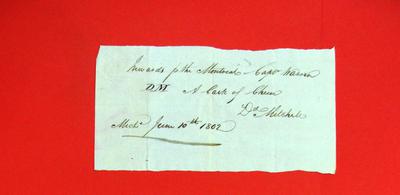 Inwards p the Montreal - Capt Wasson
DM A Cask of Chees
Dd Mitchell
Michs June 10th 1802